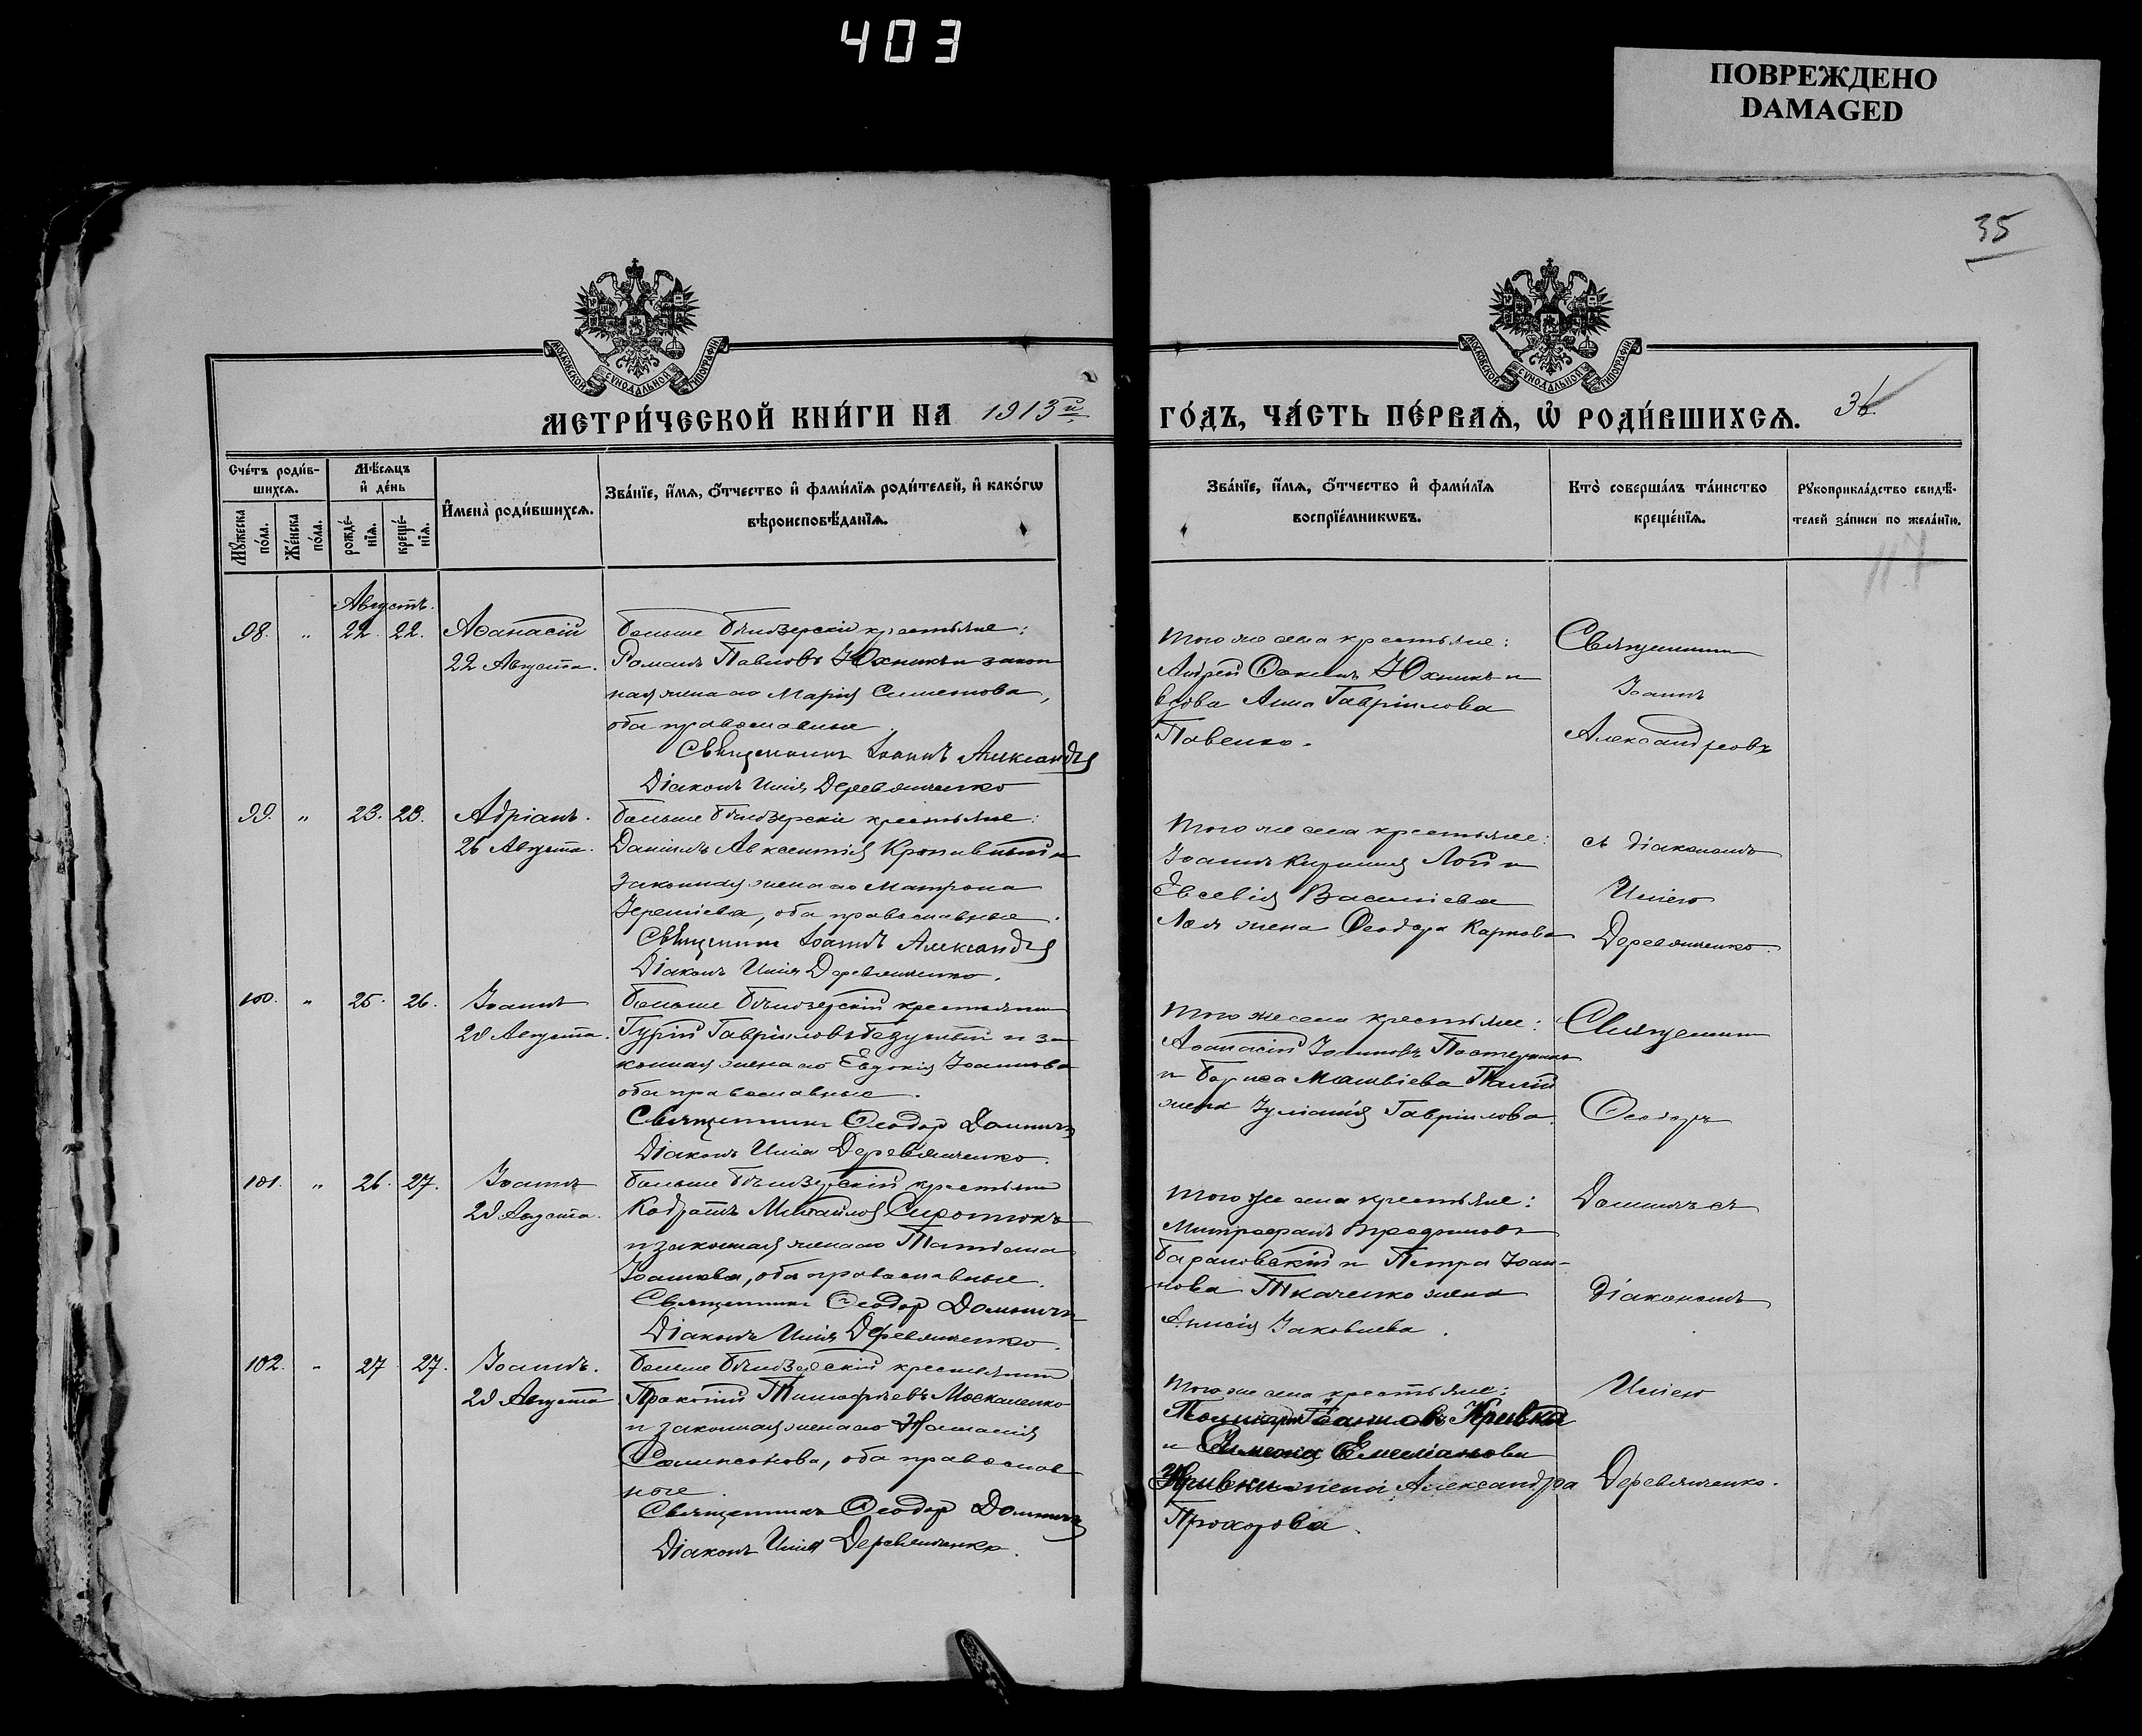 403
ПОВРЕЖДЕНО
DAMAGED
35
МОСКОВСКОЙ СУНОДАЛЬНОЙ ТИПОГРАФІИ
МОСКОВСКОЙ СУНОДАЛЬНОЙ ТИПОГРАФІИ
МЕТРИ́ЧЕСКОЙ КНИ́ГИ НА 1913й
ГО́ДЪ, ЧА́СТЬ ПЕ́РВАѦ, Ѡ РОДИ́ВШИХСѦ. 36
Сче́тъ роди́в-
шихсѧ.
Мѣ́сѧцъ
и҆ де́нь
Мꙋ́жеска
по́ла.
Же́нска
по́ла.
рожде́-
нїѧ.
креще́-
нїѧ.
И҆мена̀ роди́вшихсѧ.
Зва́нїе, и҆́мѧ, ѻ҆́тчество и҆ фами́лїѧ роди́телей, и҆ како́гѡ
вѣроисповѣ́данїѧ.
Зва́нїе, и҆́мѧ, ѻ҆́тчество и҆ фами́лїѧ
воспрїе́мникѡвъ.
Кто̀ соверша́лъ та́инство
креще́нїѧ.
Рꙋкоприкла́дство свидѣ́-
телей за́писи по жела́нїю.
117
Августъ.
98. " 22. 22. Аѳанасій
22 Августа.
Больше Бѣлозерскіе крестьяне:
Романъ Павловъ Юхникъ и закон
ная жена его Марія Симеонова,
оба православные.
Священникъ Іоаннъ Александровъ
Діаконъ Илія Деревянченко
Того же села крестьяне:
Андрей Юхникъ и
вдова Анна Гавріилова
Павенко.
Священникъ
Іоаннъ
Александровъ
99. " 23. 23. Адріанъ.
26 Августа.
Больше Бѣлозерскіе крестьяне:
Даніилъ Авксентіевъ Кропивный и
законная жена его Матрона
Іереміева, оба православные.
Священникъ Іоаннъ Александровъ
Діаконъ Илія Деревянченко.
Того же села крестьяне:
Іоаннъ Лой и
Евсевія Василіева
жена Ѳеодора Карпова
съ діакономъ
Иліею
Деревянченко.
100. " 25. 26. Іоаннъ
29 Августа.
Больше Бѣлозерскій крестьянинъ
Гурій Гавріиловъ и за-
конная жена его Евдокія Іоаннова
оба православные.
Священникъ Ѳеодоръ
Діаконъ Илія Деревянченко.
Того же села крестьяне:
Аѳанасій Іоанновъ
и Бориса Матвіева Палій
жена Іуліанія Гавріилова.
Священникъ
Ѳеодоръ
101. " 26. 27. Іоаннъ
29 Августа.
Больше Бѣлозерскій крестьянинъ
Кодратъ Михайловъ Сиротюкъ
и законная жена его Татіана
Іоаннова, оба православные.
Священникъ Ѳеодоръ
Діаконъ Илія Деревянченко.
Того же села крестьяне:
Митрофанъ
Барановскій и Петра Іоан-
нова Ткаченко жена
Анисія Іаковлева.
съ
діакономъ
102. " 27. 27. Іоаннъ.
29 Августа
Больше Бѣлозерскій крестьянинъ
Прокопій Тимофѣевъ Москаленко
и законная жена его Наталія
Сампсонова, оба православ
ные.
Священникъ Ѳеодоръ
Діаконъ Илія Деревянченко.
Того же села крестьяне:
Іоанновъ Кривка
и Симеона Емеліанова
Кривки жена Александра
Прохорова.
Иліею
Деревянченко.